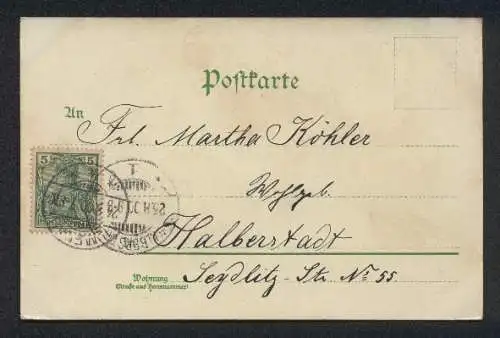 Postkarte
An
Frl. Martha Köhler
Wohlgeb.
Halberstadt
Seydlitz-Str. No 55.
Wohnung
(Straße und Hausnummer)
5 5
1